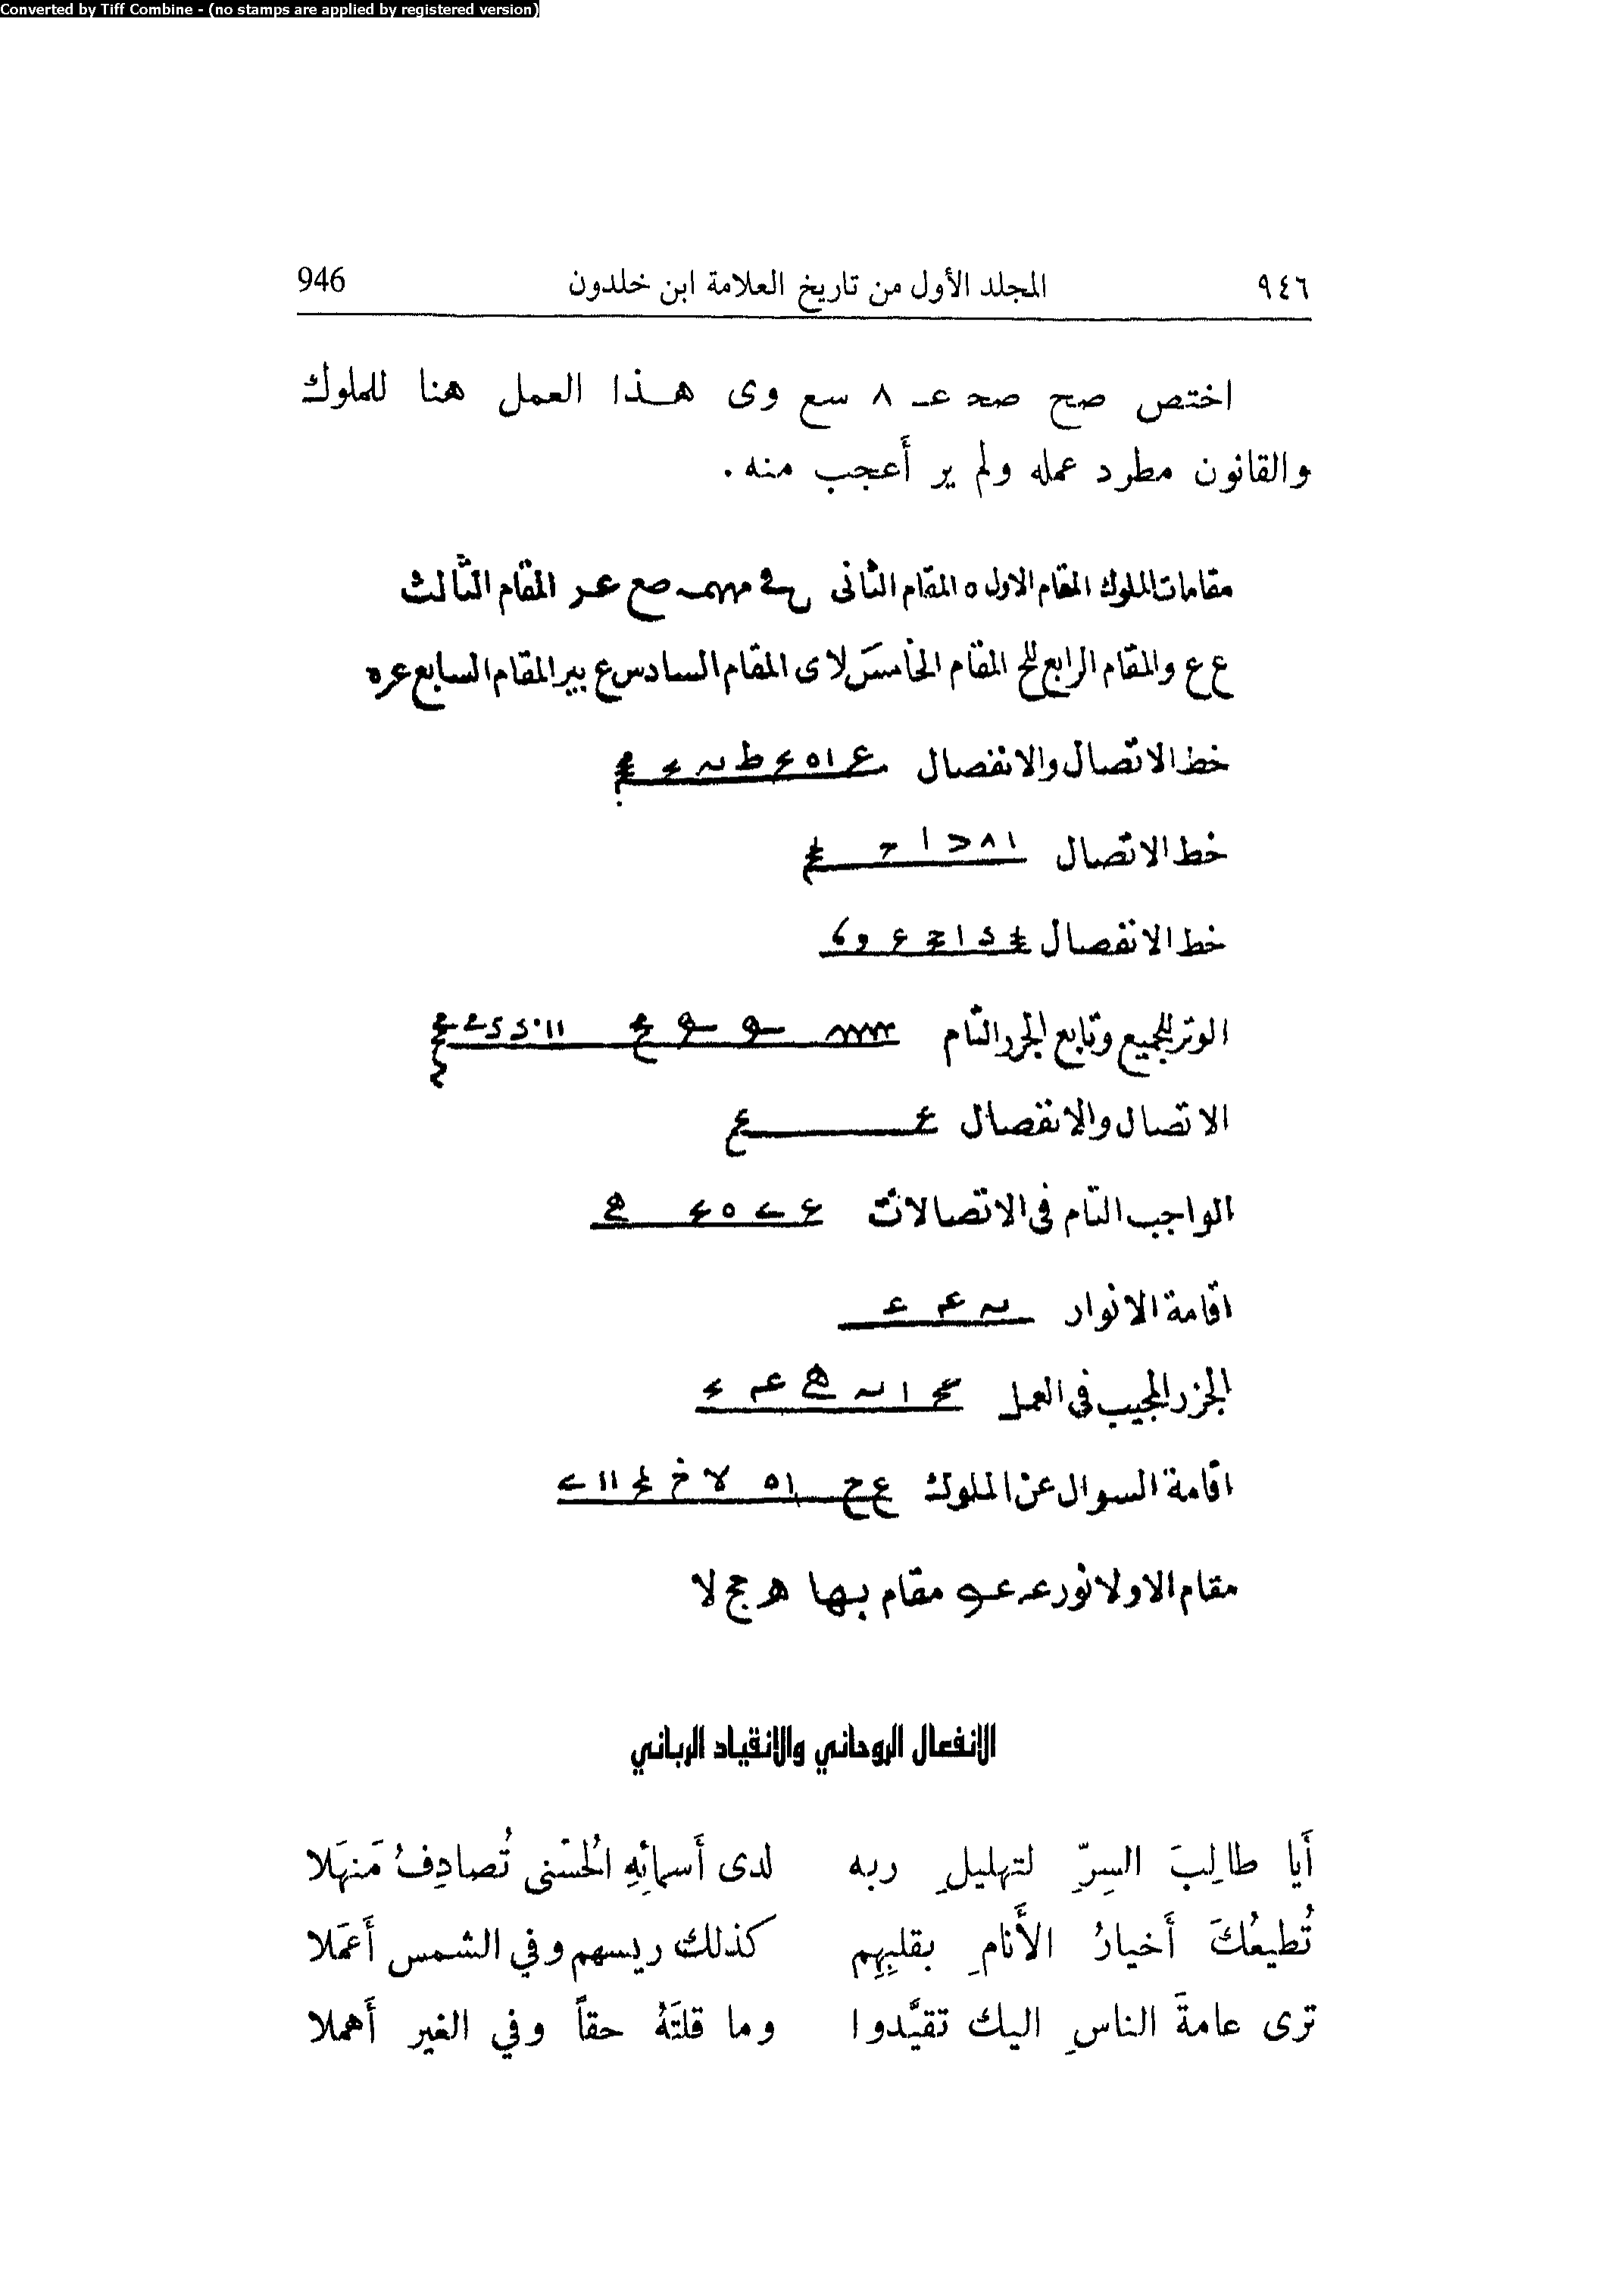 Converted by Tiff Combine - (no stamps are applied by registered version)
٩٤٦ المجلد الأول من تاريخ العلامة ابن خلدون 946
اختص صح صحـ عـ ٨ سع وى هـذا العمل هنا للملوك
والقانون مطرد عمله ولم ير أَعجب منه .
مقامات الملوك المقام الاول ه المقام الثانى صع عـر المقام الثالث
ع ع والمقام الرابع للح المقام الخامس لاى المقام السادس ع بير المقام السابع عره
خط الاتصال والانفصال
خط الاتصال
خط الانفصال
الوتر للجميع وتابع الجزر التام
الاتصال والانفصال
الواجب التام فى الاتصالات
اقامة الانوار
الجزر المجيب فى العمل
اقامة السوال عن الملوك
مقام الاولا نور عه مقام بها هر جح لا
الانفعال الروحاني والانقياد الرباني
أَيا طالِبَ السِرِّ لتهليلِ ربه لدى أَسمائِهِ الحُسْنى تُصادِفُ مَنهَلا
تُطيعُكَ أَخيارُ الأَنامِ بقلبِهِم كذلك ريسهم وفي الشمس أَعمَلا
ترى عامةَ الناسِ اليك تقيَّدوا وما قلتَهُ حقاً وفي الغير أَهملا